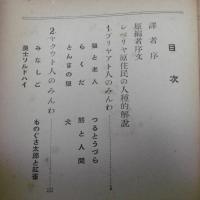 目次
譯者序
原編者序文
シベリヤ原住民の人種的解說
1 ブリヤアト人のみんわ
狼と老人
つるとうづら
らくだ
熊と人間
とんまの狼
犬
2 ヤクウト人のみんわ
みなしご
ものぐさ太郎と紅雀
勇士ソルドハイ